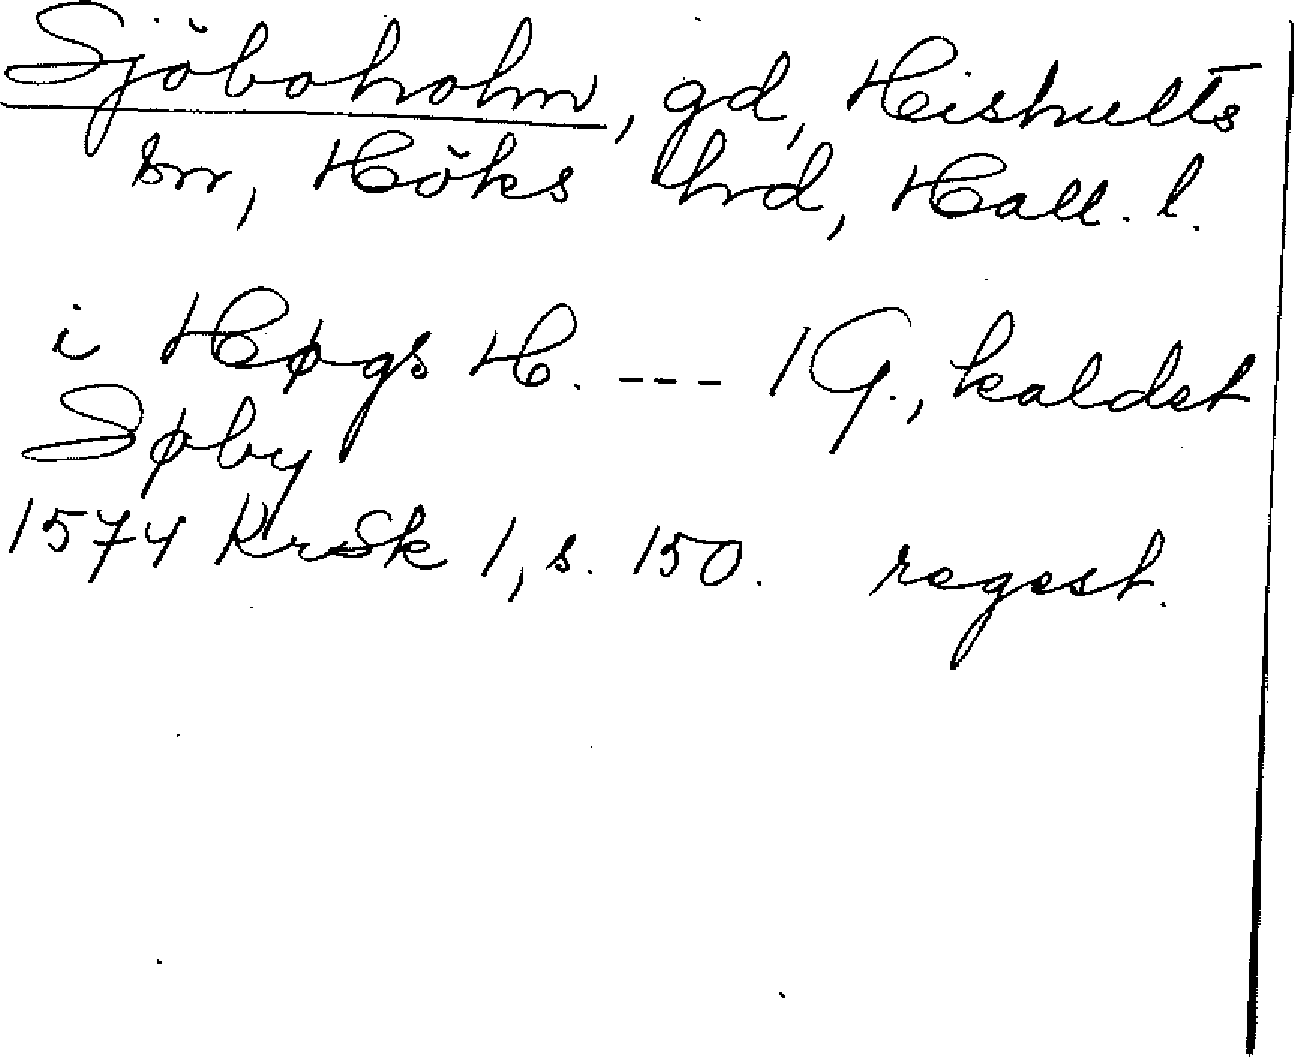 Sjöboholm, gd, Hishults
sn, Höks hrd, Hall. l.
i Høgs H. --- 1 G., kaldet
Søby
1574 KrSk 1, s. 150. regest.